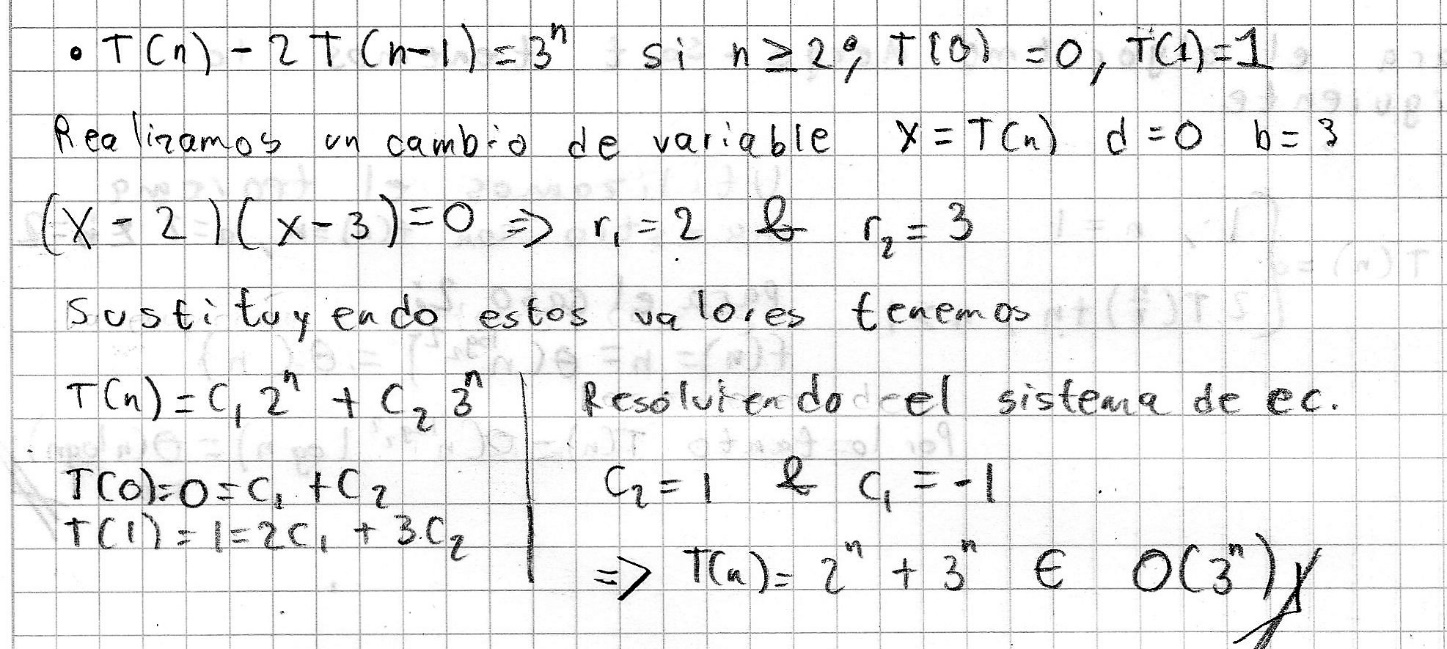 • T(n) - 2T(n-1) = 3ⁿ si n ≥ 2; T(0) = 0, T(1) = 1
Realizamos un cambio de variable x = T(n) d = 0 b = 3
(x - 2)(x - 3) = 0 ⇒ r₁ = 2 & r₂ = 3
sustituyendo estos valores tenemos
T(n) = C₁ 2ⁿ + C₂ 3ⁿ
T(0) = 0 = C₁ + C₂
T(1) = 1 = 2C₁ + 3.C₂
Resolviendo el sistema de ec.
C₂ = 1 & C₁ = -1
⇒ T(n) = 2ⁿ + 3ⁿ ∈ O(3ⁿ)